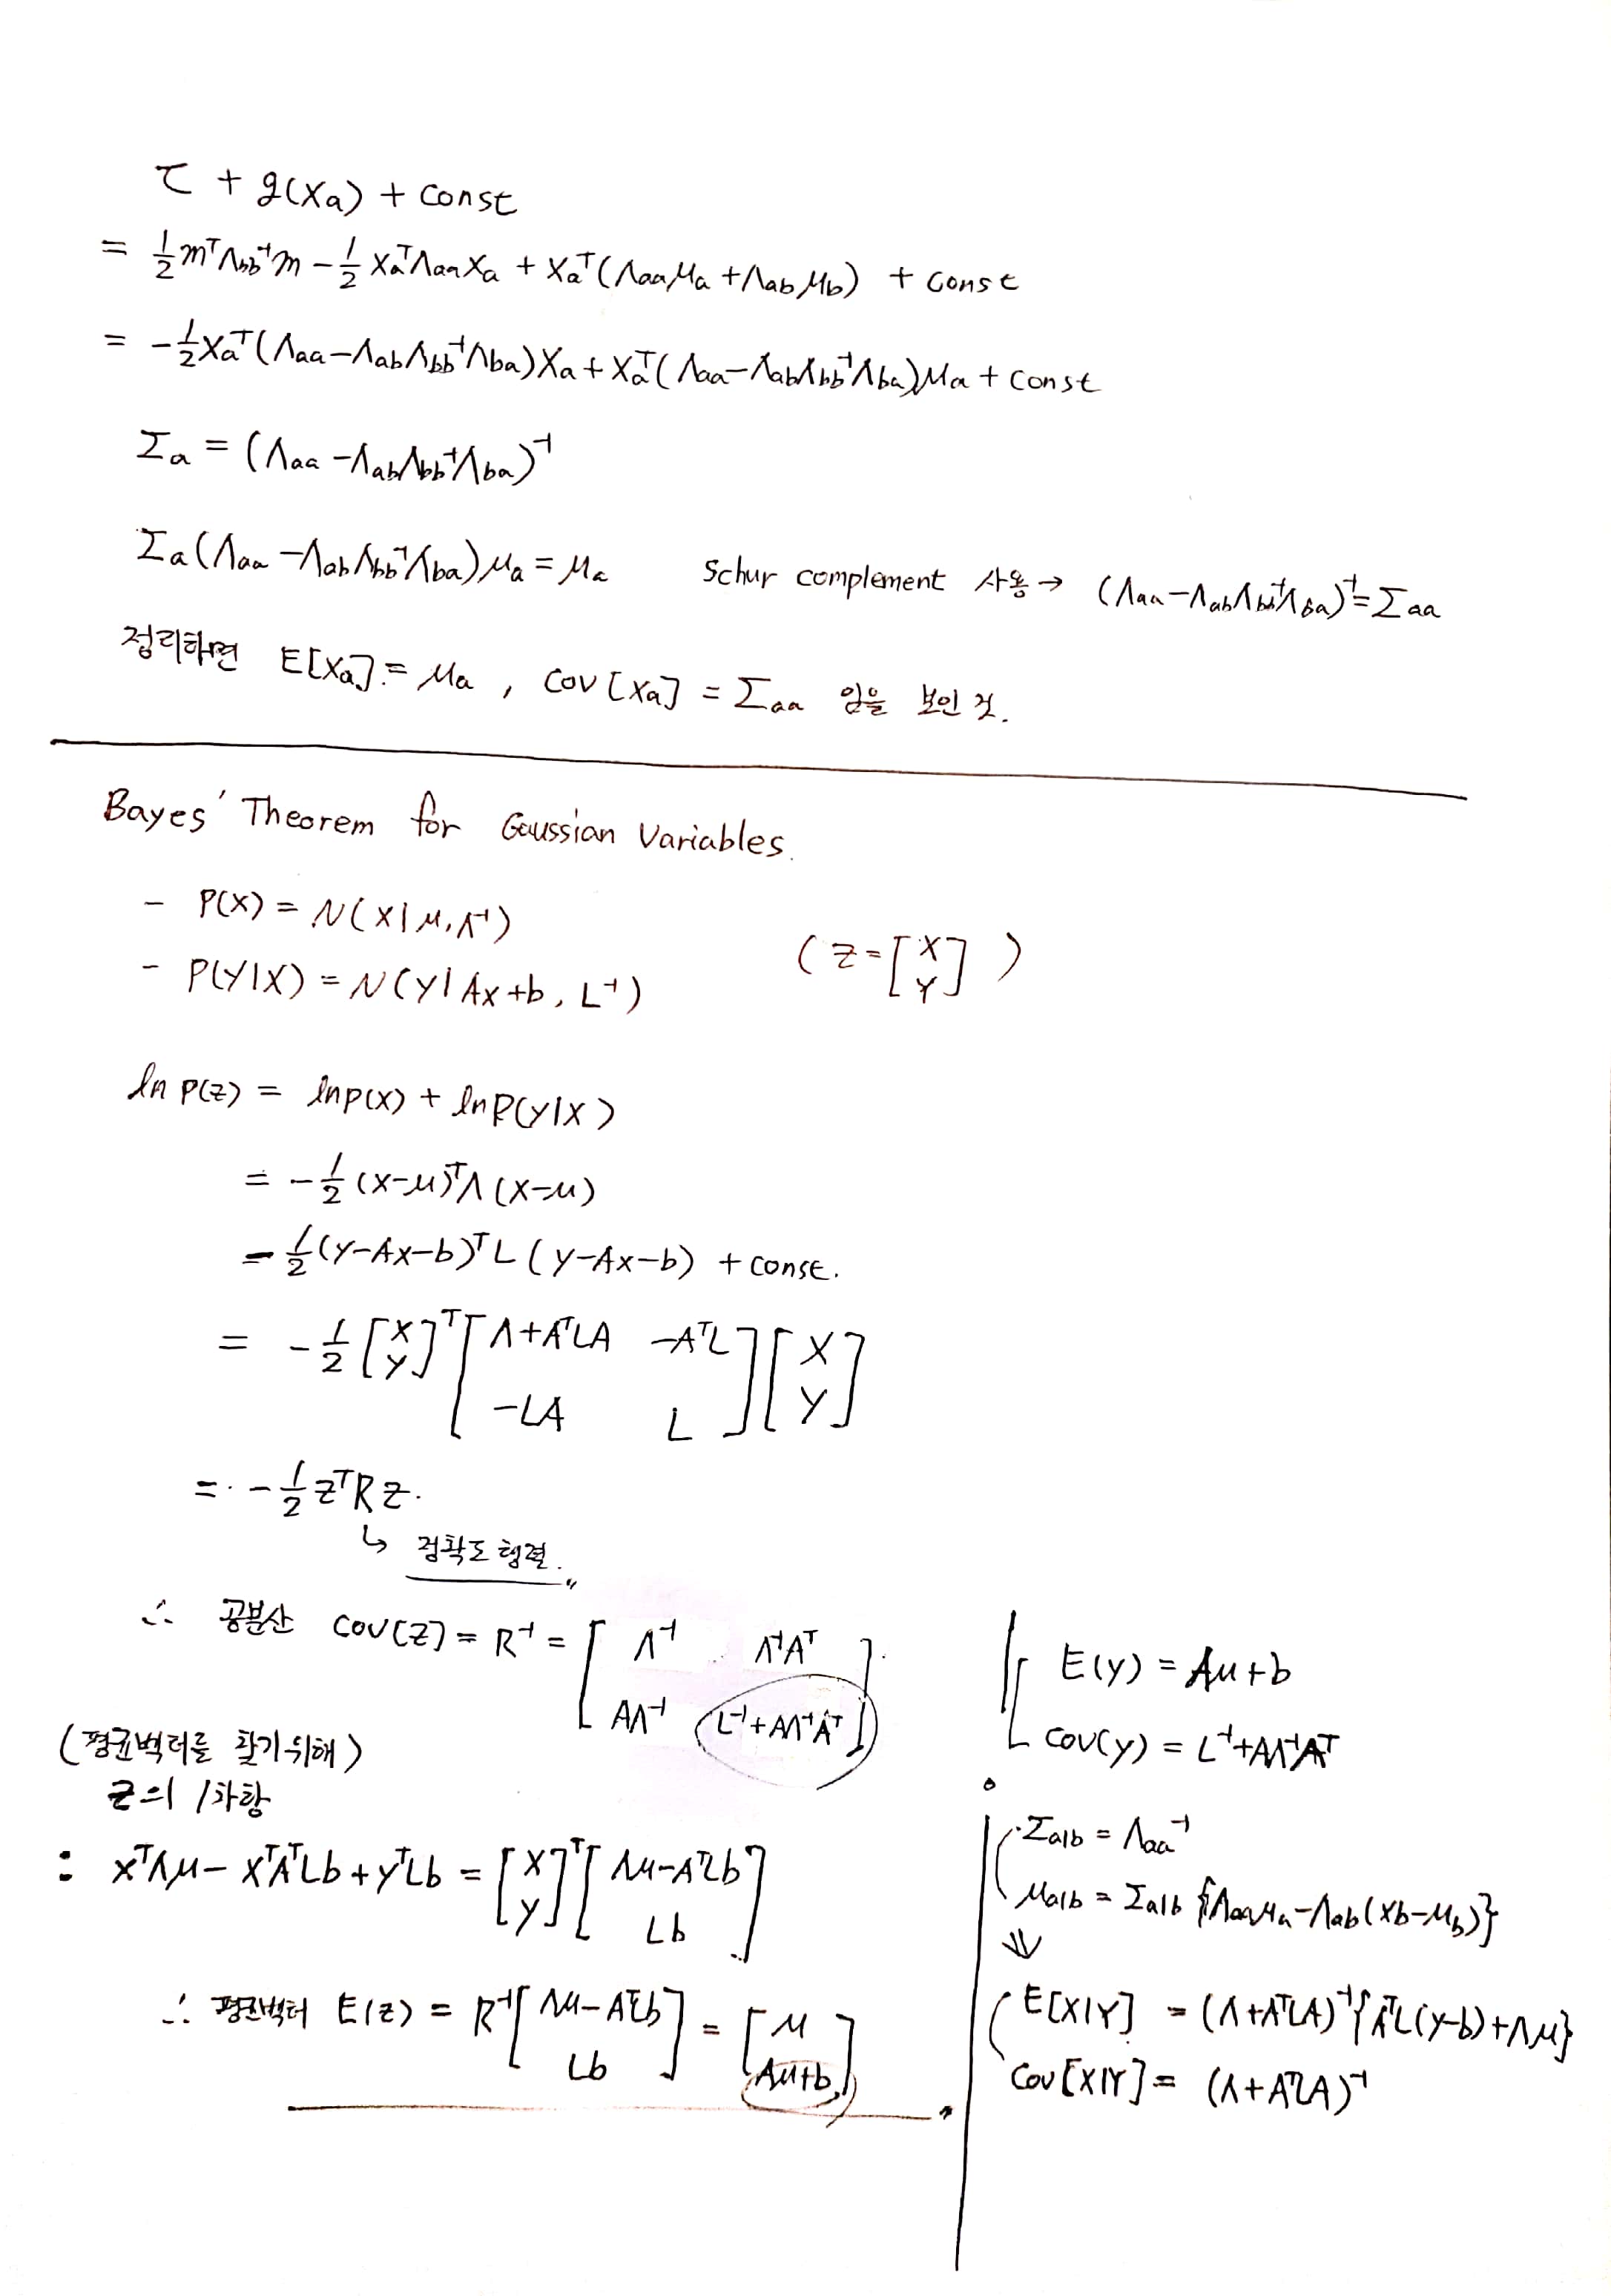 τ + g(Xa) + const
= 1/2 mᵀΛbb⁻¹m - 1/2 XaᵀΛaaXa + Xaᵀ(Λaaμa + Λabμb) + const
= -1/2 Xaᵀ(Λaa-ΛabΛbb⁻¹Λba)Xa + Xaᵀ(Λaa-ΛabΛbb⁻¹Λba)μa + const
Σa = (Λaa - ΛabΛbb⁻¹Λba)⁻¹
Σa(Λaa - ΛabΛbb⁻¹Λba)μa = μa   Schur complement 사용 → (Λaa-ΛabΛbb⁻¹Λba)⁻¹ = Σaa
정리하면 E[Xa] = μa , cov[Xa] = Σaa 임을 보인 것.
Bayes' Theorem for Gaussian Variables.
- P(X) = N(X|μ, Λ⁻¹)
- P(Y|X) = N(Y|AX+b, L⁻¹)   (Z = [X Y])
ln P(Z) = lnp(X) + lnP(Y|X)
= -1/2 (X-μ)ᵀΛ(X-μ)
- 1/2 (Y-AX-b)ᵀL(Y-AX-b) + const.
= -1/2 [X Y]ᵀ [Λ+AᵀLA  -AᵀL ; -LA  L] [X Y]
= -1/2 ZᵀRZ.
↳ 정확도 행렬.
∴ 공분산 cov[Z] = R⁻¹ = [Λ⁻¹  Λ⁻¹Aᵀ ; AΛ⁻¹  L⁻¹+AΛ⁻¹Aᵀ]
(평균벡터를 찾기위해)
Z의 1차항
: XᵀΛμ - XᵀAᵀLb + YᵀLb = [X Y]ᵀ [Λμ-AᵀLb ; Lb]
∴ 평균벡터 E(Z) = R⁻¹ [Λμ-AᵀLb ; Lb] = [μ ; Aμ+b]
E(y) = Aμ+b
cov(y) = L⁻¹+AΛ⁻¹Aᵀ
Σa|b = Λaa⁻¹
μa|b = Σa|b {Λaaμa-Λab(Xb-μb)}
⇓
E[X|Y] = (Λ+AᵀLA)⁻¹{AᵀL(Y-b)+Λμ}
Cov[X|Y] = (Λ+AᵀLA)⁻¹